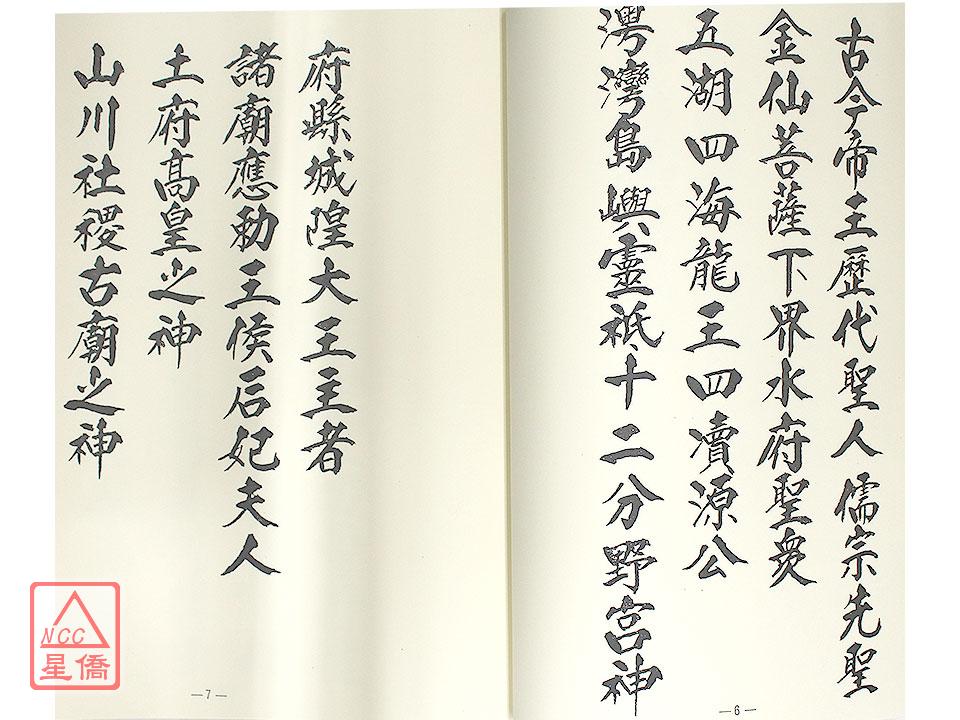 古今帝王歷代聖人儒宗先聖
金仙菩薩下界水府聖衆
五湖四海龍王四凟源公
灣島嶼靈祇十二分野宮神
—6—
府縣城隍大王主者
諸廟應勅王侯后妃夫人
土府髙皇之神
山川社稷古廟之神
—7—
NCC
星僑